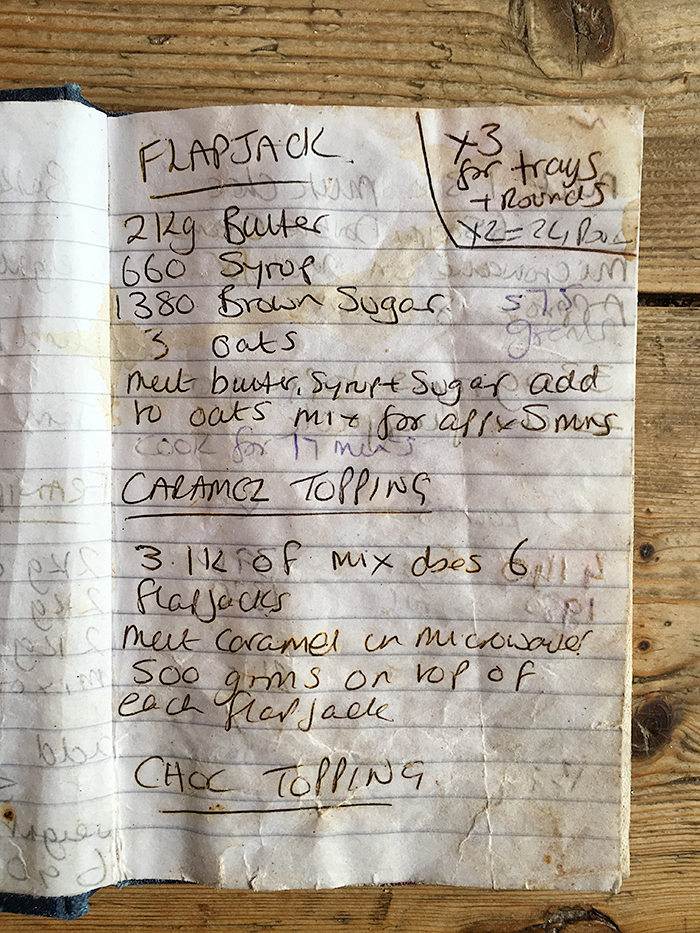 FLAPJACK.
x3
for trays
+ Rounds
x2 = 24 Rou
2Kg Butter
660 Syrup
1380 Brown Sugar
575
grams
3 oats
melt butter, Syrup + Sugar add
to oats mix for appx 5 mins
COOK for 17 mins
CARAMEL TOPPING
3.1K OF mix does 6
flapjacks
melt caramel in microwave
500 grms on top of
each flapjack
CHOC TOPPING.